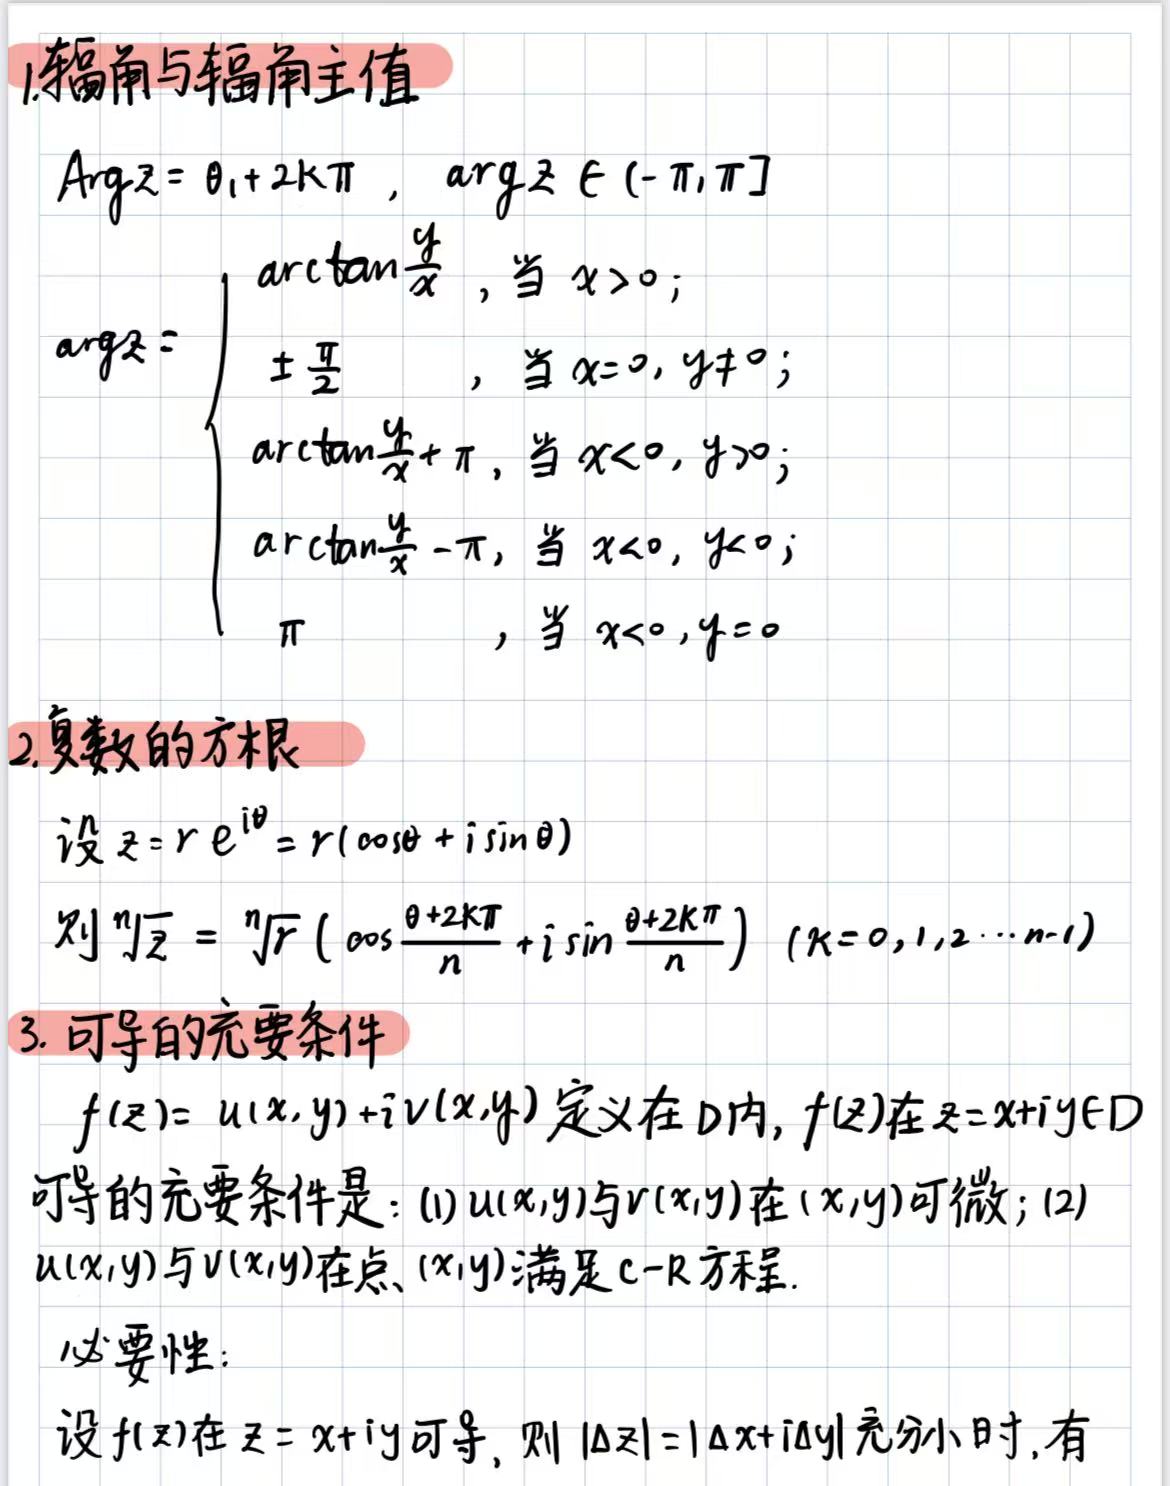 1.辐角与辐角主值
Argz = θ₁+2kπ , argz ∈ (-π,π]
argz =
arctan y/x , 当 x>0;
± π/2 , 当 x=0, y≠0;
arctan y/x + π, 当 x<0, y>0;
arctan y/x - π, 当 x<0, y<0;
π , 当 x<0, y=0
2.复数的方根
设 z = r e^{iθ} = r(cosθ + i sinθ)
则 ⁿ√z = ⁿ√r ( cos (θ+2kπ)/n + i sin (θ+2kπ)/n ) (k=0,1,2…n-1)
3. 可导的充要条件
f(z)= u(x,y)+iv(x,y) 定义在D内, f(z)在z=x+iy∈D
可导的充要条件是: (1) u(x,y)与v(x,y)在(x,y)可微; (2)
u(x,y)与v(x,y)在点(x,y)满足C-R方程.
必要性:
设f(z)在 z = x+iy可导, 则 |Δz|=|Δx+iΔy|充分小时,有